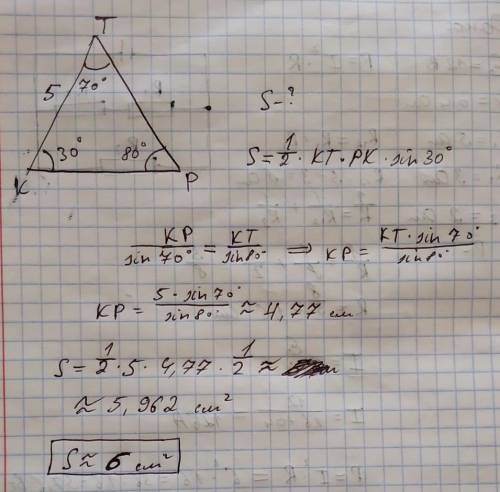 T
5 70°
30° 80°
K P
S-?
S = 1/2 · KT · PK · sin 30°
KP/sin 70° = KT/sin 80° ⇒ KP = KT · sin 70°/sin 80°
KP = 5 · sin 70°/sin 80° ≈ 4,77 см
S = 1/2 · 5 · 4,77 · 1/2 ≈
≈ 5,962 см²
S ≈ 6 см²